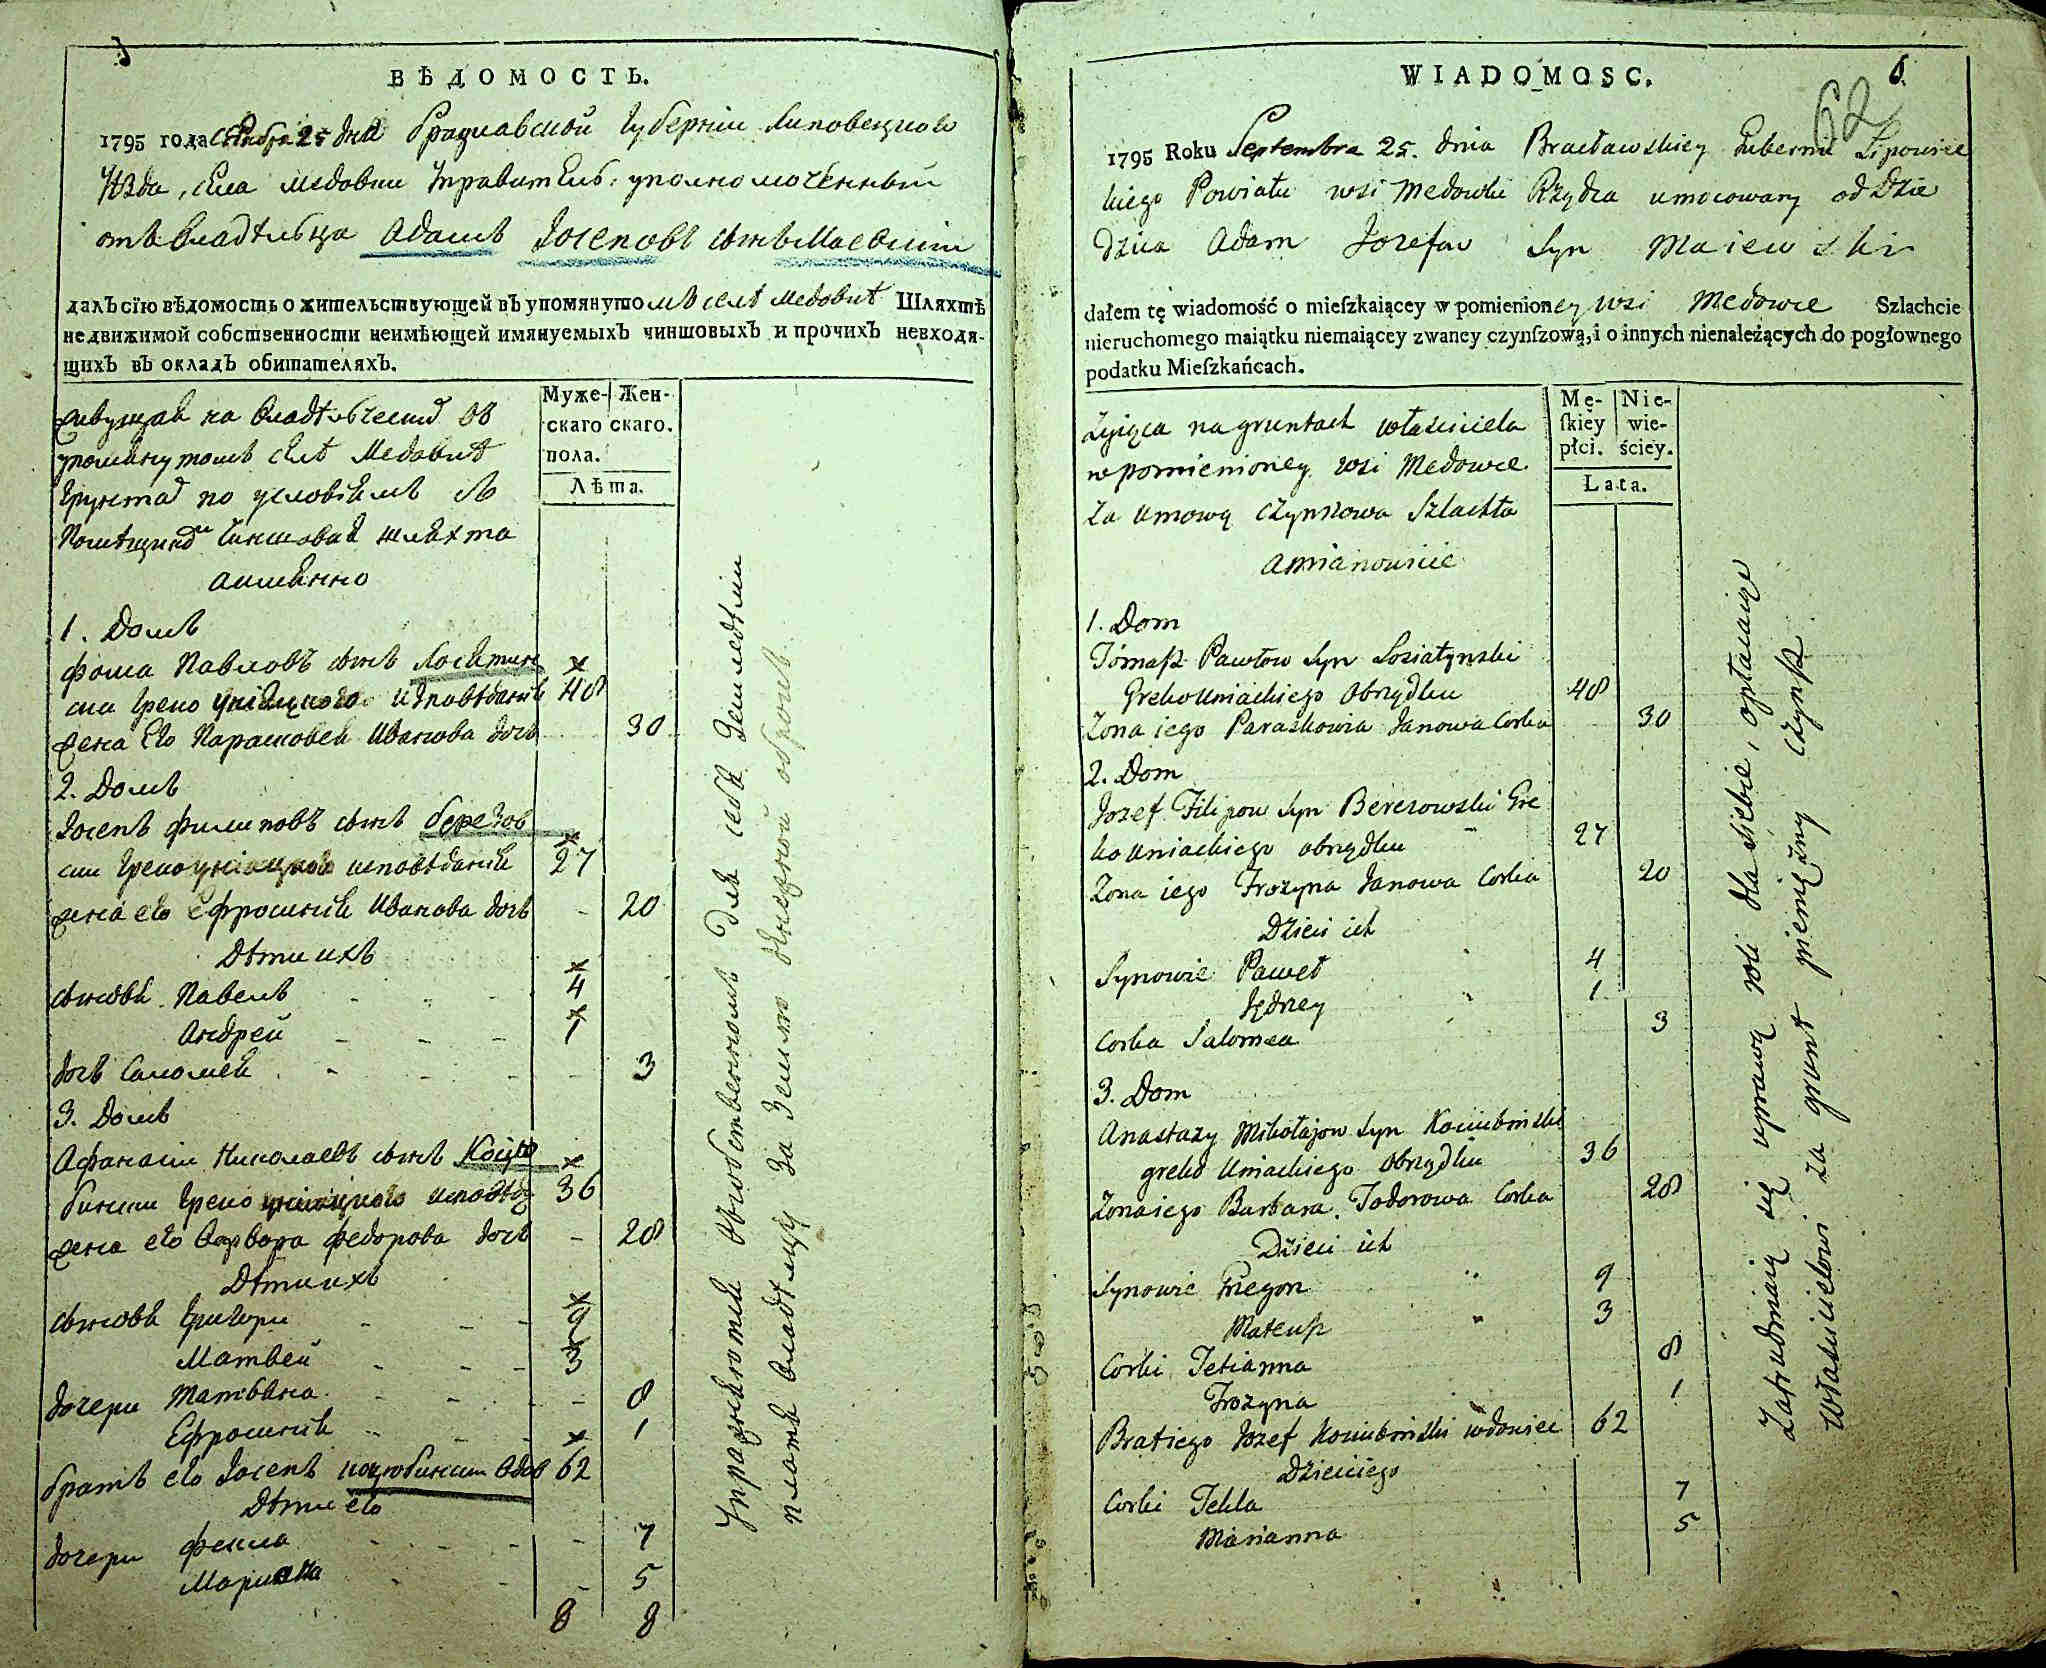 ВѢДОМОСТЬ.
1795 года Сентября 25 дня Брацлавской Губернии Липовецкого
уѣзда, села Медовки управитель уполномоченный
отъ владѣльца Адамъ Іосеповъ сынъ Маевский
далъ сїю вѣдомость о жительствующей въ упомянутомъ селѣ Медовкѣ Шляхтѣ
недвижимой собственности неимѣющей имянуемыхъ чиншовыхъ и прочихъ невходя-
щихъ въ окладъ обитателяхъ.
Муже- Жен-
скаго скаго.
пола.
Лѣта.
живущая на владѣльческихъ въ
упомянутомъ селѣ Медовкѣ
грунтахъ по условіямъ съ
помѣщикомъ чиншовая шляхта
а имянно
1. Домъ
Фома Павловъ сынъ Лосятин
ски греко униацкого исповѣданія 48
жена его Парасковея Иванова дочь 30
2. Домъ
Іосепъ Филиповъ сынъ Березов
ски греко униацкого исповѣданія 27
жена его Ефросинія Иванова дочь - 20
Дѣти ихъ
сыновя Павелъ 4
Андрей 1
дочь Саломея 3
3. Домъ
Афанасий Николаевъ сынъ Коцю
бински греко униацкого исповѣда 36
жена его Варвара Федорова дочь - 28
Дѣти ихъ
сыновя Григори 9
Матвей 3
дочери Татьяна 8
Ефросинія 1
братъ его Іосепъ Коцюбински вдов 62
Дѣти его
дочери Фекла 7
Марияна 5
8 8
Упражняются въ собственномъ для себя земледѣлии
платя владѣльцу за землю денежной оброкъ
WIADOMOSC.
6
62
1795 Roku Septembra 25. dnia Bracławskiey Gubernii Lipowiec
kiego Powiatu wsi Medowki Rządca umocowany od Dzie
dzica Adam Jozefow Syn Maiewski
dałem tę wiadomość o mieſzkaiącey w pomienioney wsi Medowce Szlachcie
nieruchomego maiątku niemaiącey zwaney czynſzową, i o innych nienależących do pogłownego
podatku Mieſzkańcach.
Mę- Nie-
ſkiey wie-
płci. ściey.
Lata.
Zyiąca na gruntach właściciela
w pomienioney wsi Medowce
za umową czynszowa Szlachta
a mianowicie
1. Dom
Tomasz Pawłow Syn Łosiatynski
Greko Uniackiego Obrządku 48
Zona iego Paraskowia Janowa Corka 30
2. Dom
Jozef Filipow Syn Berezowski Gre
ko uniackiego obrządku 27
Zona iego Frozyna Janowa Corka 20
Dzieci ich
Synowie Paweł 4
Jędrzey 1
Corka Salomea 3
3. Dom
Anastazy Mikołajow Syn Kociubinski
greko Uniackiego Obrządku 36
Zona iego Barbara Todorowa Corka 28
Dzieci ich
Synowie Gregor 9
Mateusz 3
Corki Tetianna 8
Frozyna 1
Brat iego Jozef Kociubinski wdowiec 62
Dzieci iego
Corki Tekla 7
Marianna 5
Zatrudniaią się uprawą roli dla siebie, opłacaiąc
Właścicielowi za grunt pieniężny czynsz